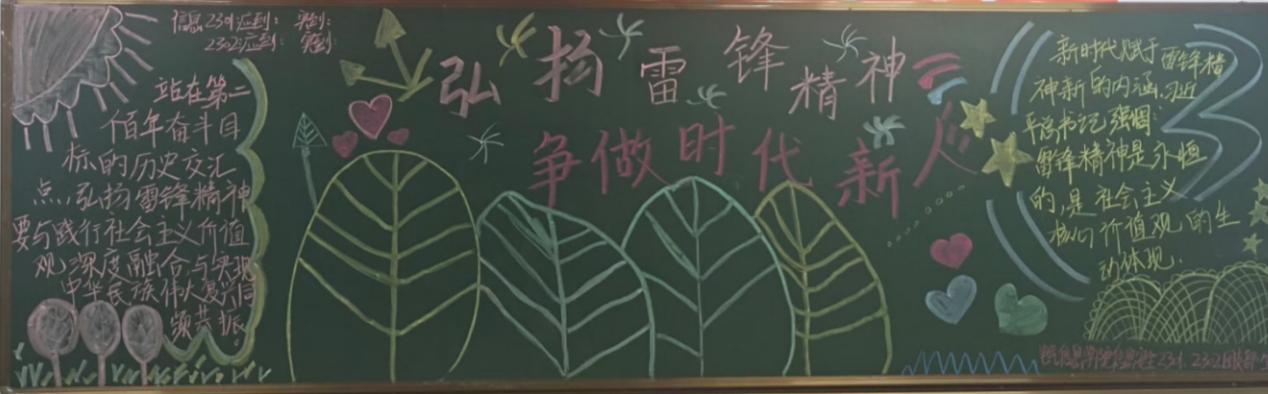 信息2301应到： 实到：
2302应到： 实到：
弘扬雷锋精神
争做时代新人
站在第二
佰年奋斗目
标的历史交汇
点，弘扬雷锋精神
要与践行社会主义价值
观深度融合，与实现
中华民族伟大复兴同
频共振。
新时代赋于雷锋精
神新的内涵，习近
平总书记强调：
雷锋精神是永恒
的，是社会主义
核心价值观的生
动体现．
2301. 2302团支部